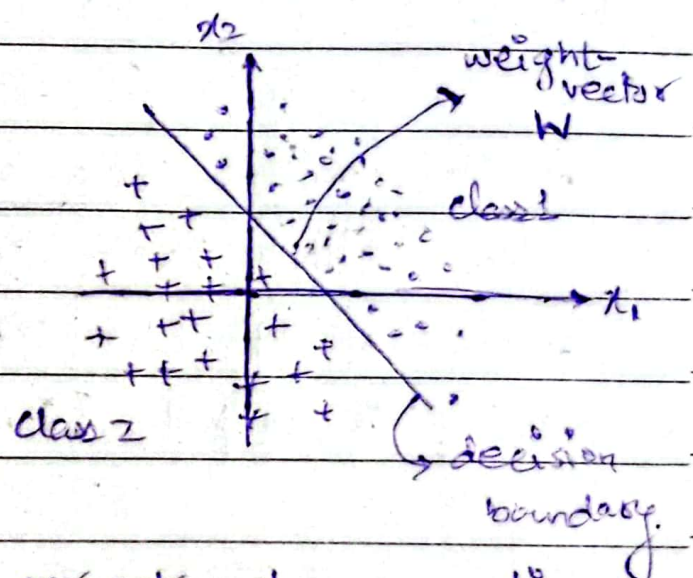 x₂
weight-
vector
W
class 1
x₁
class 2
decision
boundary.